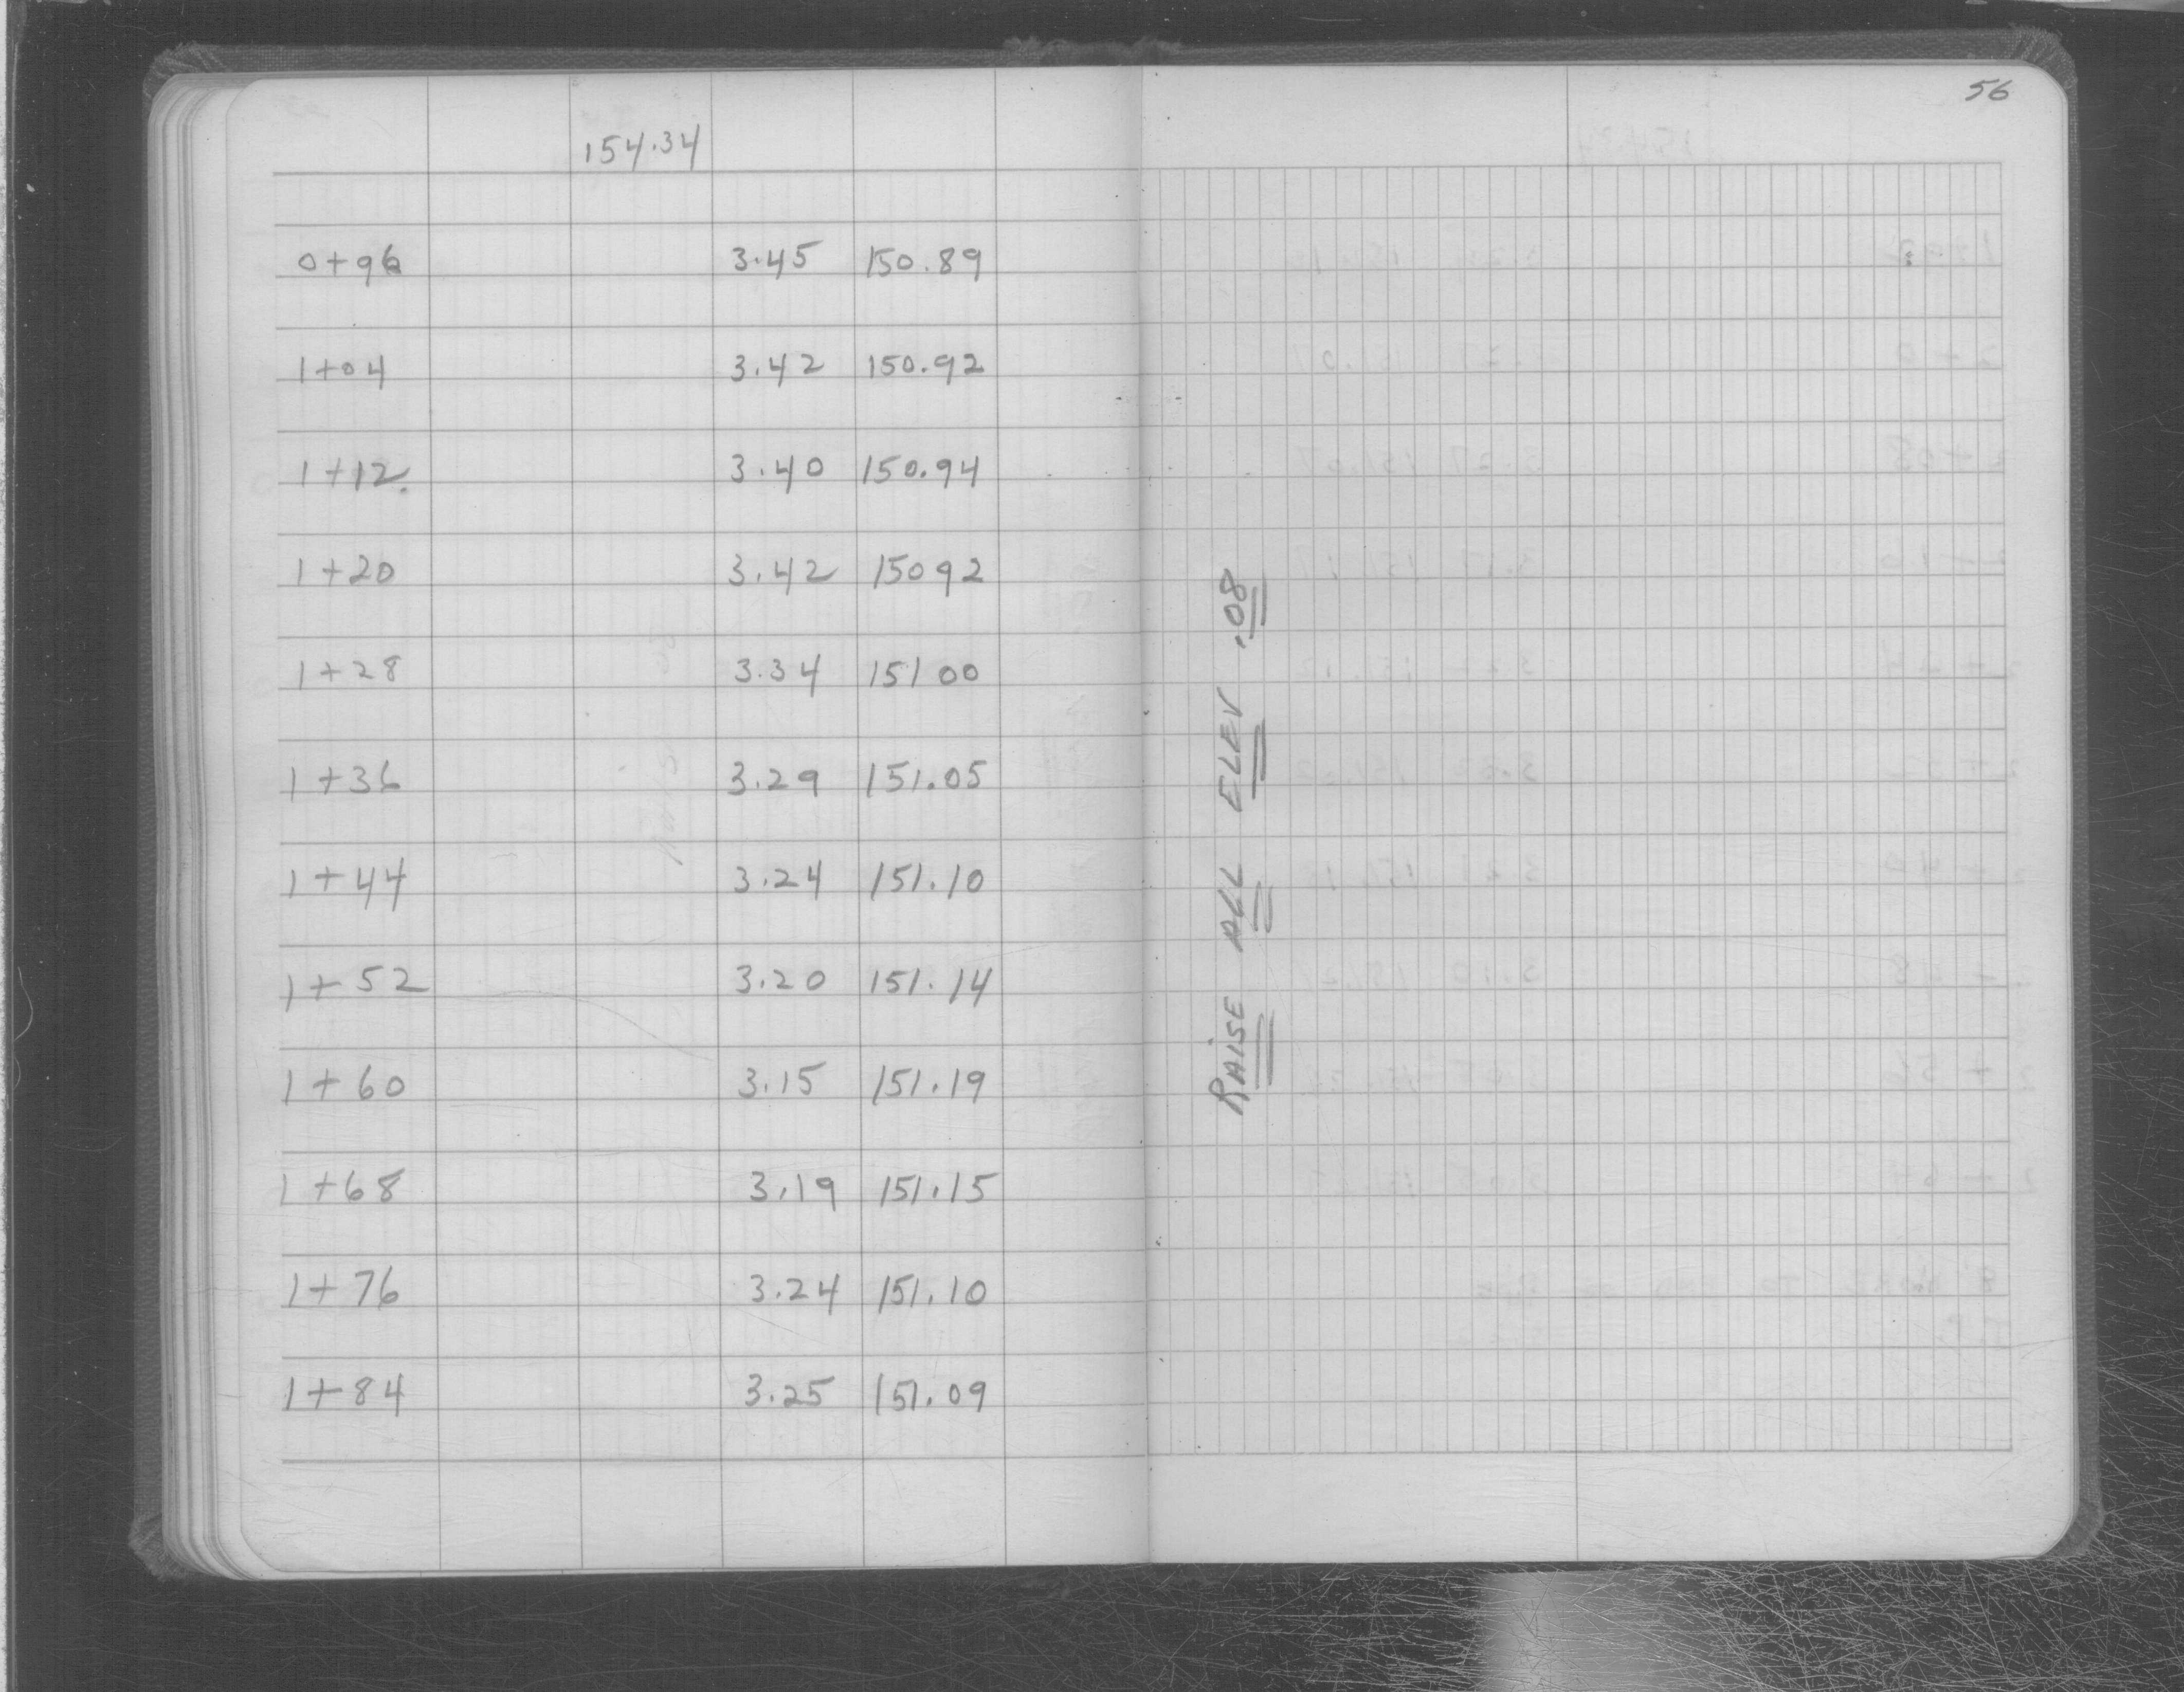 56
154.34
0+96 3.45 150.89
1+04 3.42 150.92
1+12. 3.40 150.94
1+20 3.42 15092
1+28 3.34 151 00
1+36 3.29 151.05
1+44 3.24 151.10
1+52 3.20 151.14
1+60 3.15 151.19
1+68 3.19 151.15
1+76 3.24 151.10
1+84 3.25 151.09
RAISE ALL ELEV .08